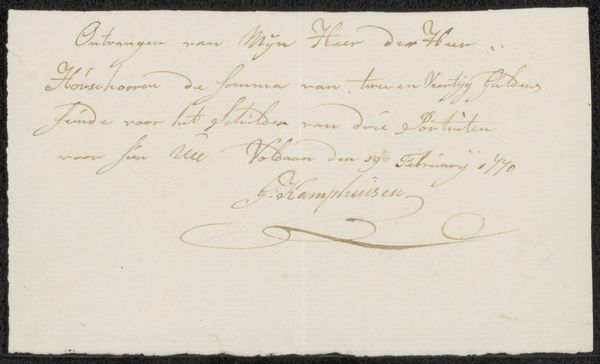 Ontvangen van Mijn Heer der Heer
Houschooren de Somma van twee en Veertig Guldens
Sijnde voor het Schilden van drie Portriten
voor sin UE Voldaan den 19 Februarij 1770
G: Kamphuijsen